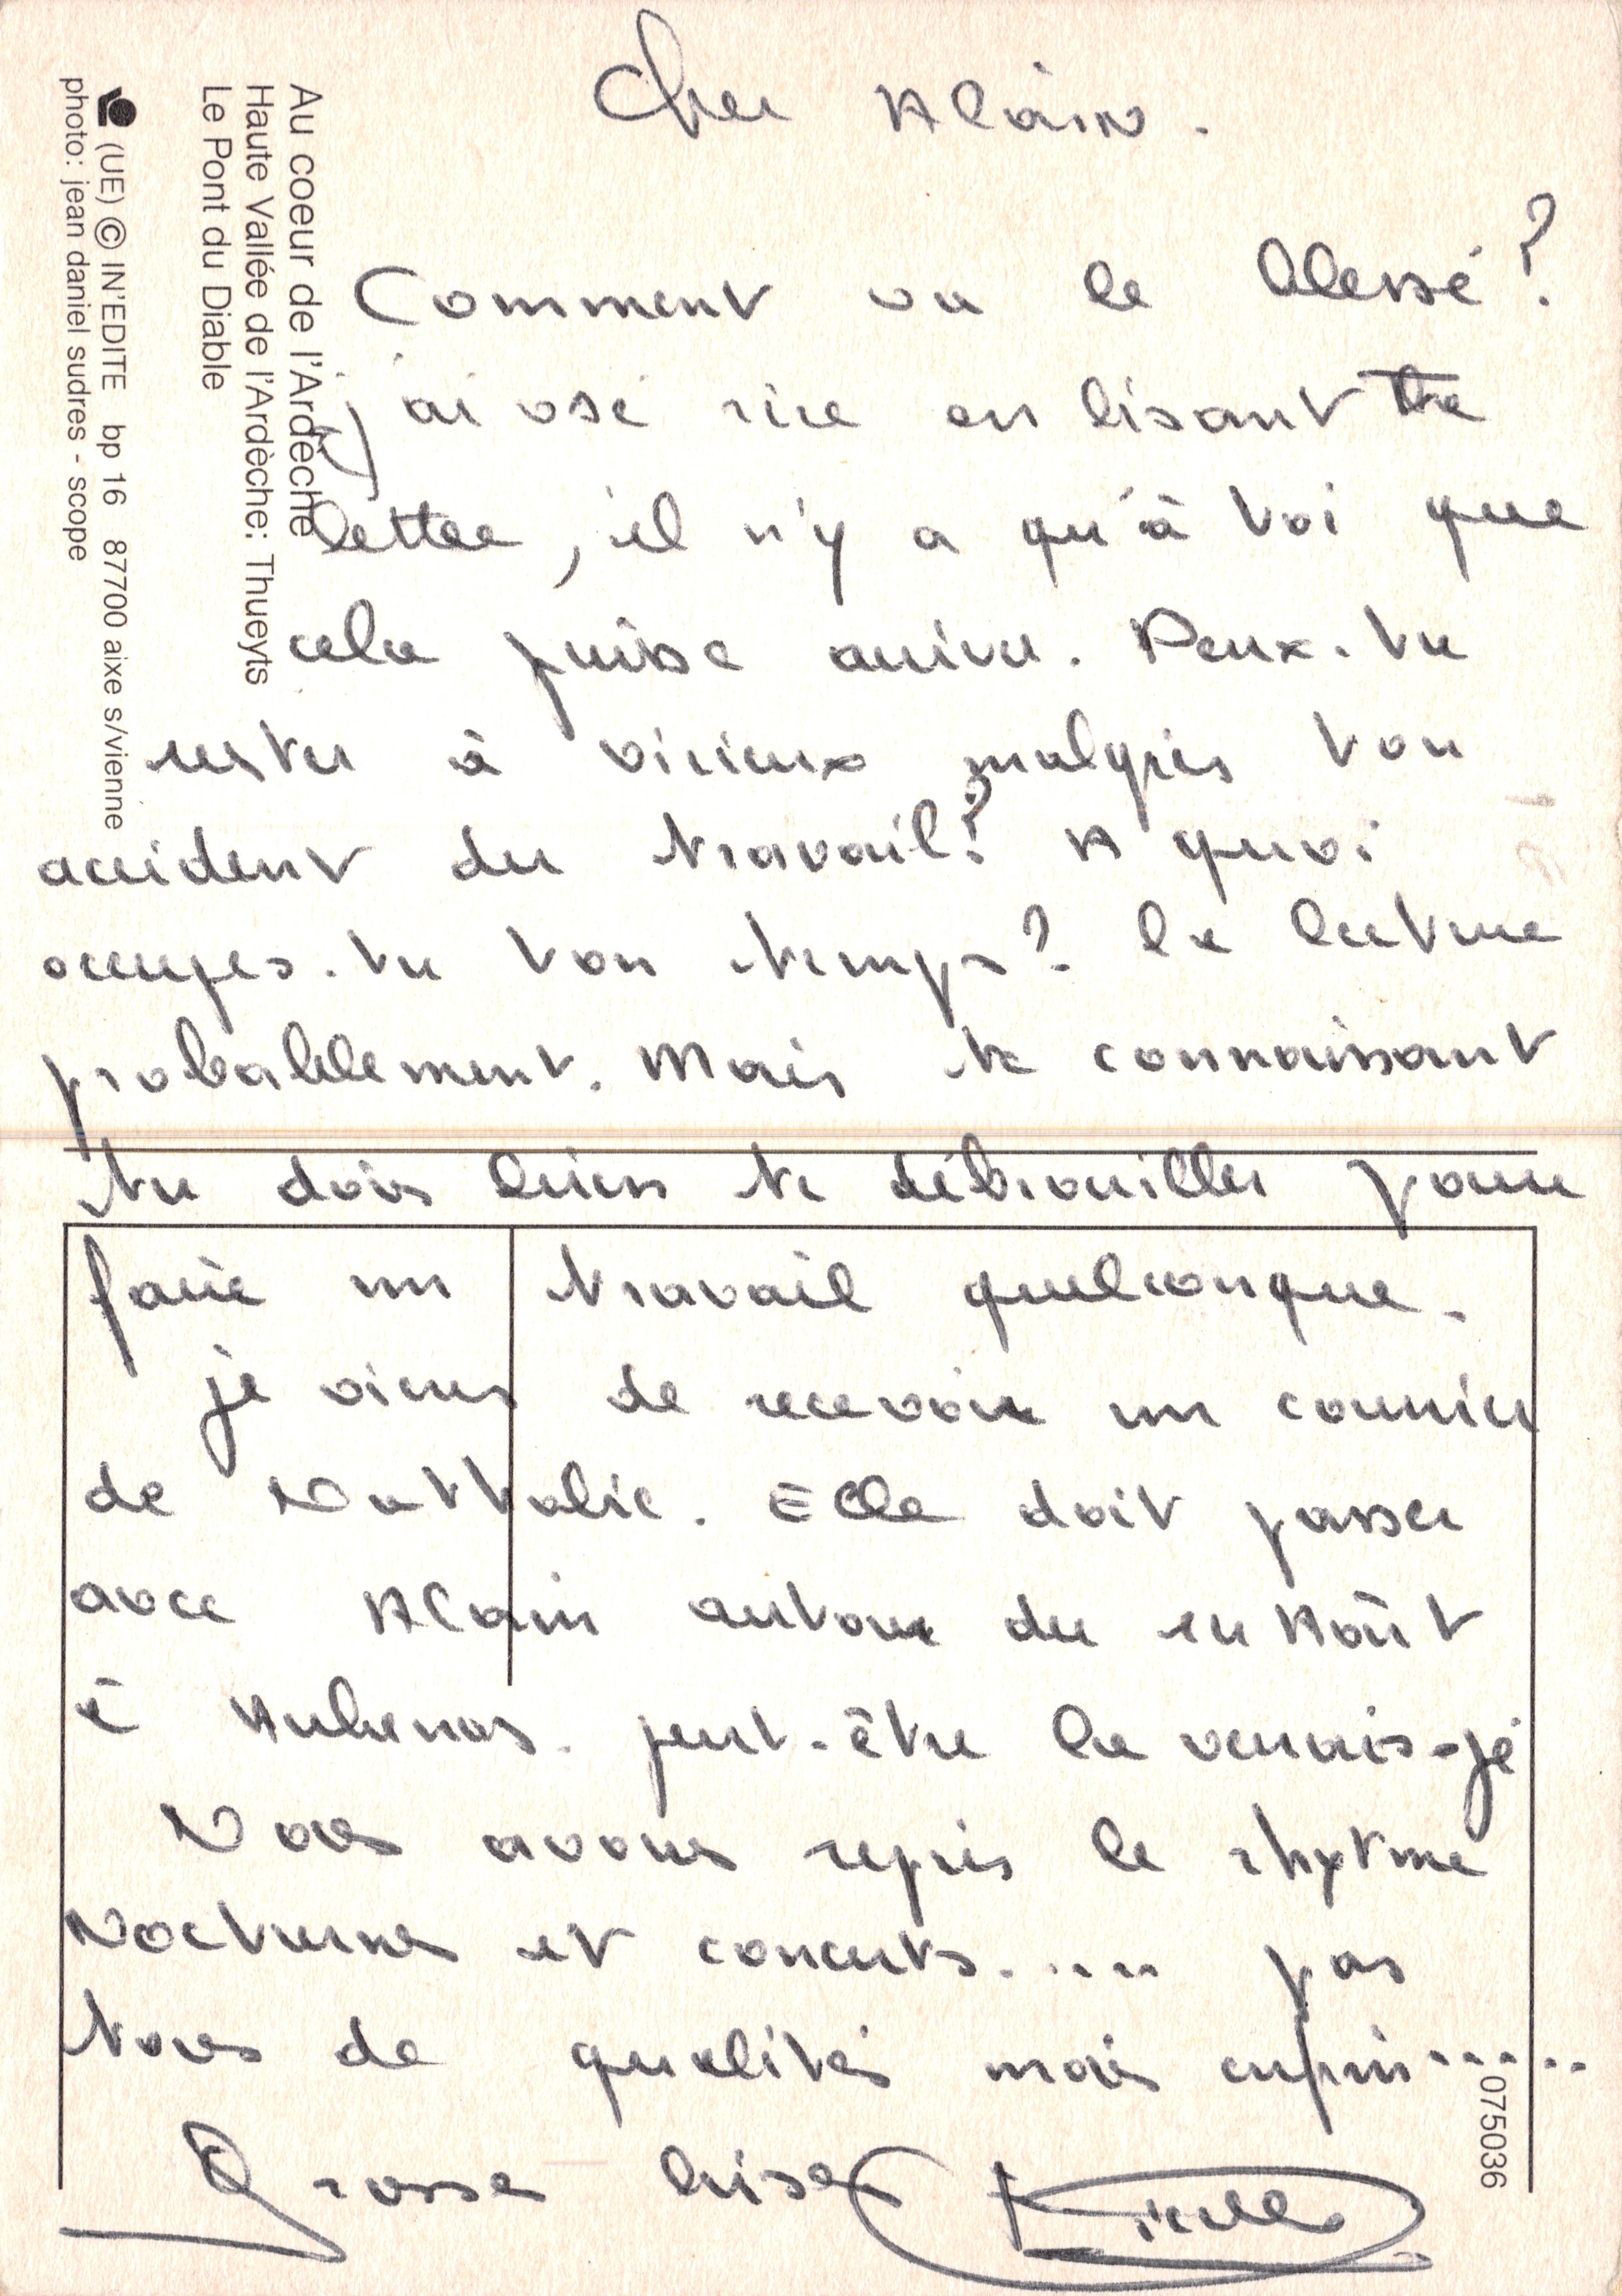 Cher Alain.
Comment va le blessé ?
j'ai osé rire en lisant ta
lettre, il n'y a qu'à toi que
cela puisse arriver. Peux-tu
rester à malgrès ton
accident du travail ? A quoi
occupes-tu ton temps ? la lecture
probablement. Mais te connaissant
tu dois bien te débrouiller pour
faire un travail quelconque.
je viens de recevoir un courrier
de Natthalie. Elle doit passer
avec Alain autour du Août
à Aubenas. peut-être la verrais-je
Nous avons repris le rhytme
Nocturnes et concerts..... pas
tous de qualités mais enfin.....
Grosse bise
Au coeur de l'Ardèche
Haute Vallée de l'Ardèche: Thueyts
Le Pont du Diable
(UE) © IN'EDITE bp 16 87700 aixe s/vienne
photo: jean daniel sudres - scope
075036